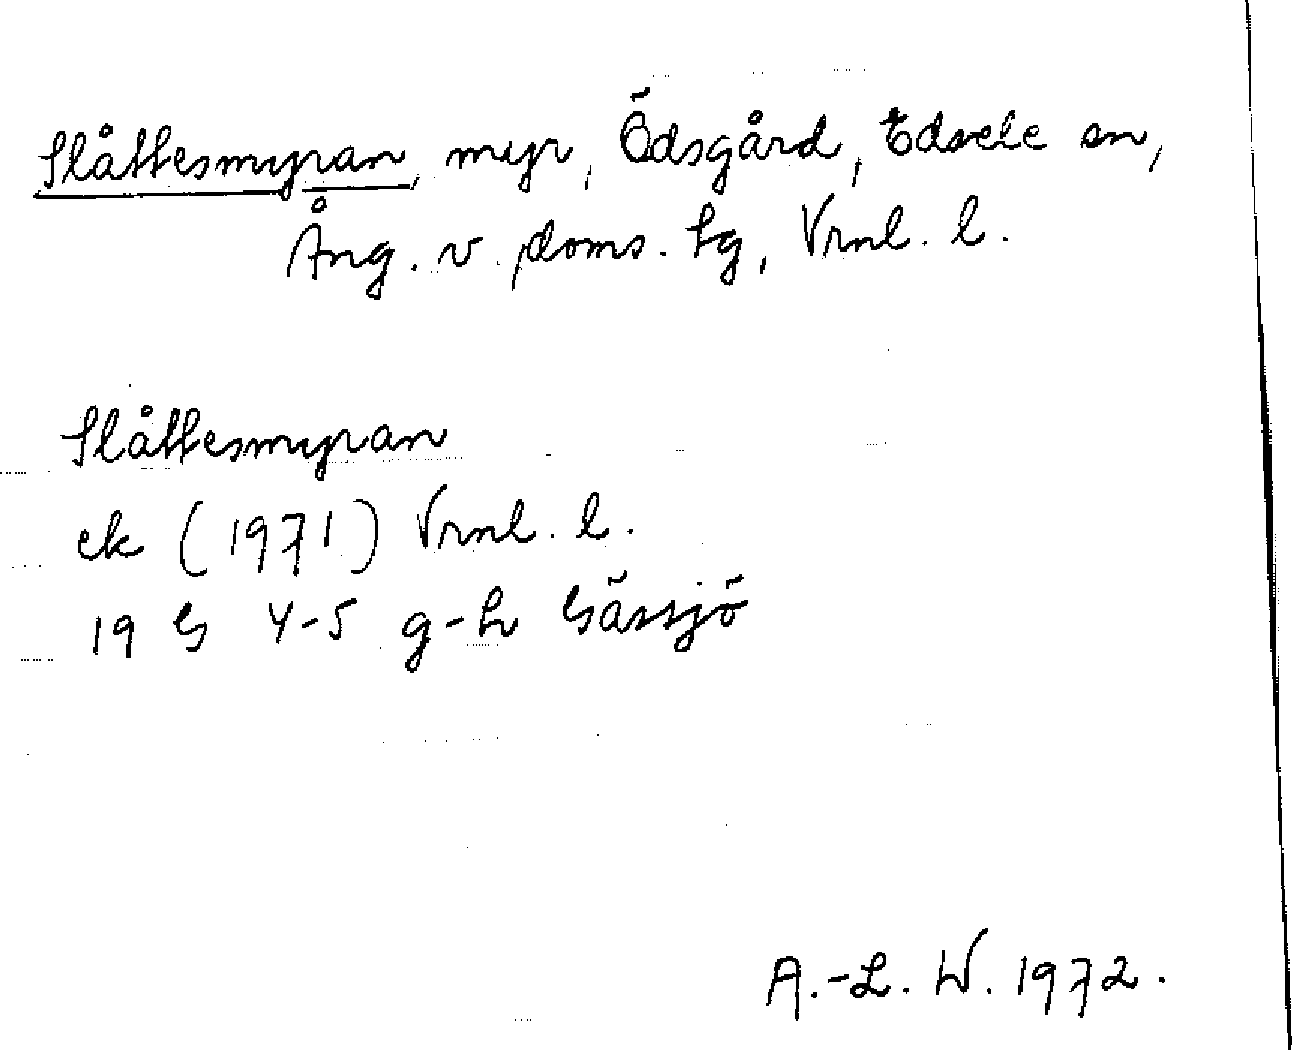 Slåttesmyran, myr, Ödsgård, Edsele sn,
Ång. v. doms. hg, Vrnl. l.
Slåttesmyran
ek (1971) Vrnl. l.
19 G 4-5 g-h Gässjö
A.-L. W. 1972.